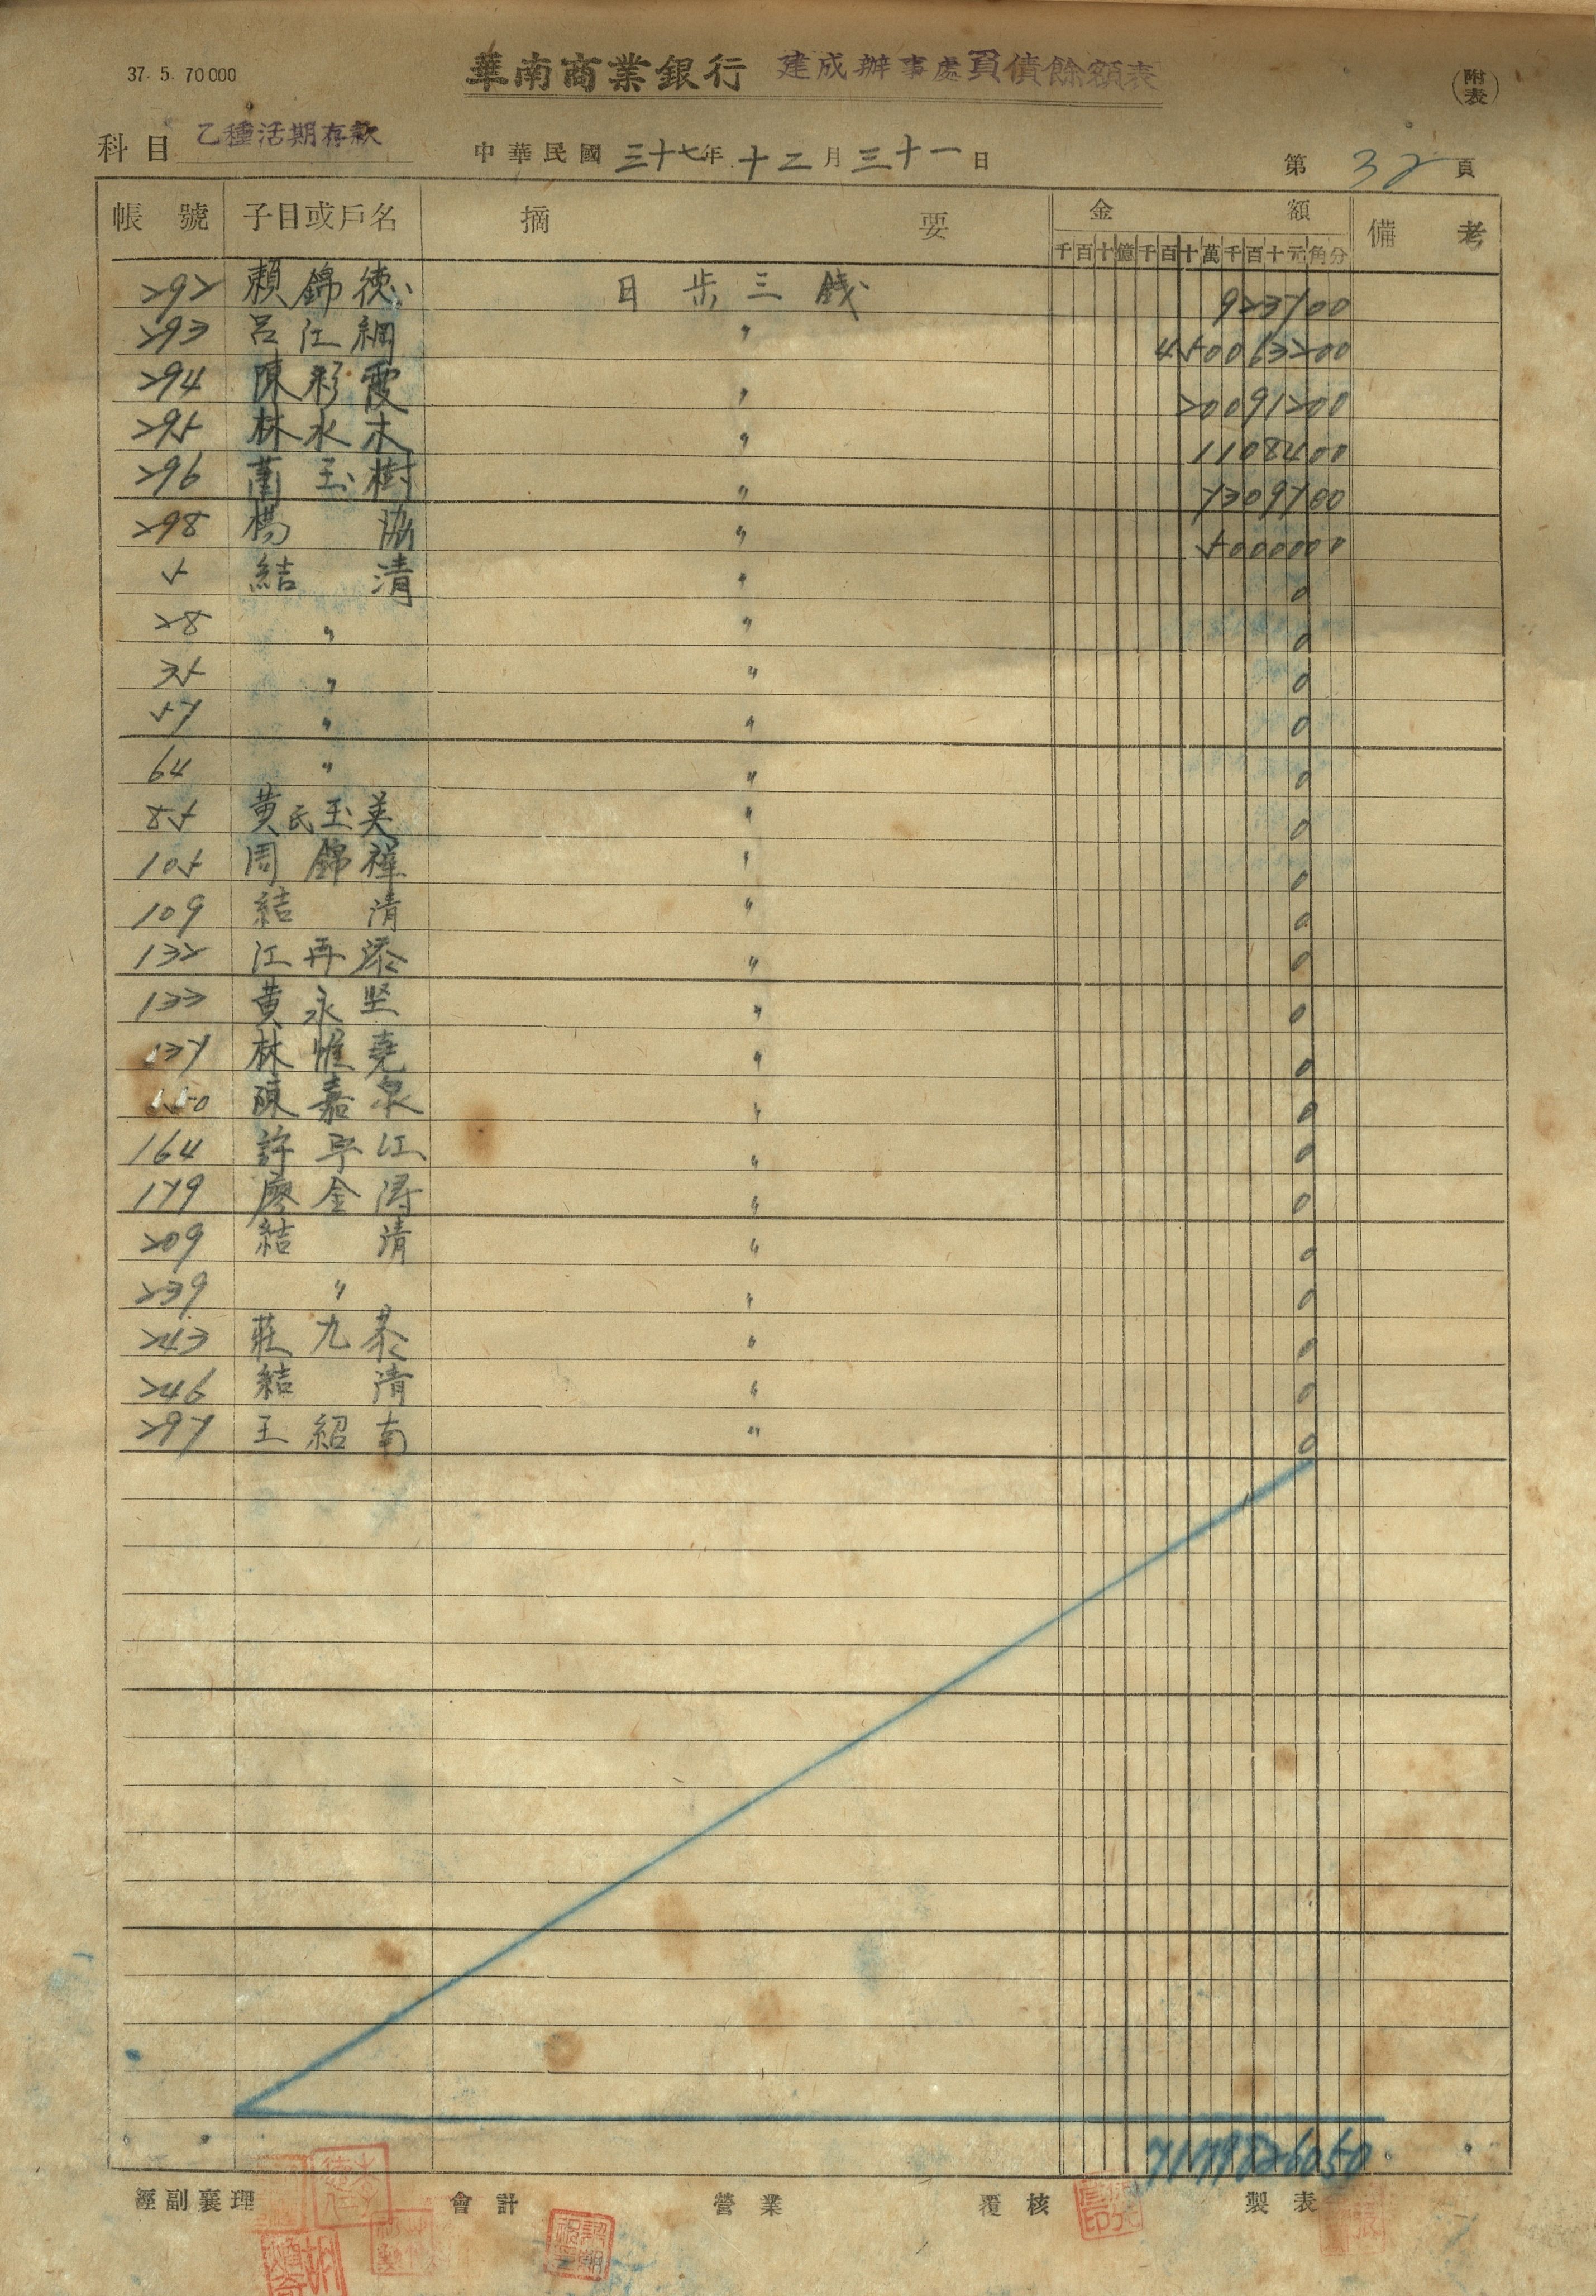 37. 5. 70000
華南商業銀行 建成辦事處負債餘額表
(附表)
科目 乙種活期存款 中華民國三十七年十二月三十一日 第32頁
帳號 子目或戶名 摘要 金額 備考
千百十億千百十萬千百十元角分
292 賴錦德 日步三錢 923700
293 呂江綢 〃 450063200
294 陳彩霞 〃 20091200
295 林水木 〃 1108400
296 玉樹 〃 7309700
298 楊協 〃 5000000
5 結清 〃 0
28 〃 〃 0
35 〃 〃 0
57 〃 〃 0
64 〃 〃 0
85 黃氏玉美 〃 0
105 周錦褘 〃 0
109 結清 〃 0
132 江再添 〃 0
133 黃永坚 〃 0
137 林惟堯 〃 0
150 陳嘉泉 〃 0
164 許平江 〃 0
179 廖金濤 〃 0
209 結清 〃 0
239 〃 〃 0
243 莊九泰 〃 0
246 結清 〃 0
297 王紹南 〃 0
經副襄理 會計 營業 覆核 製表